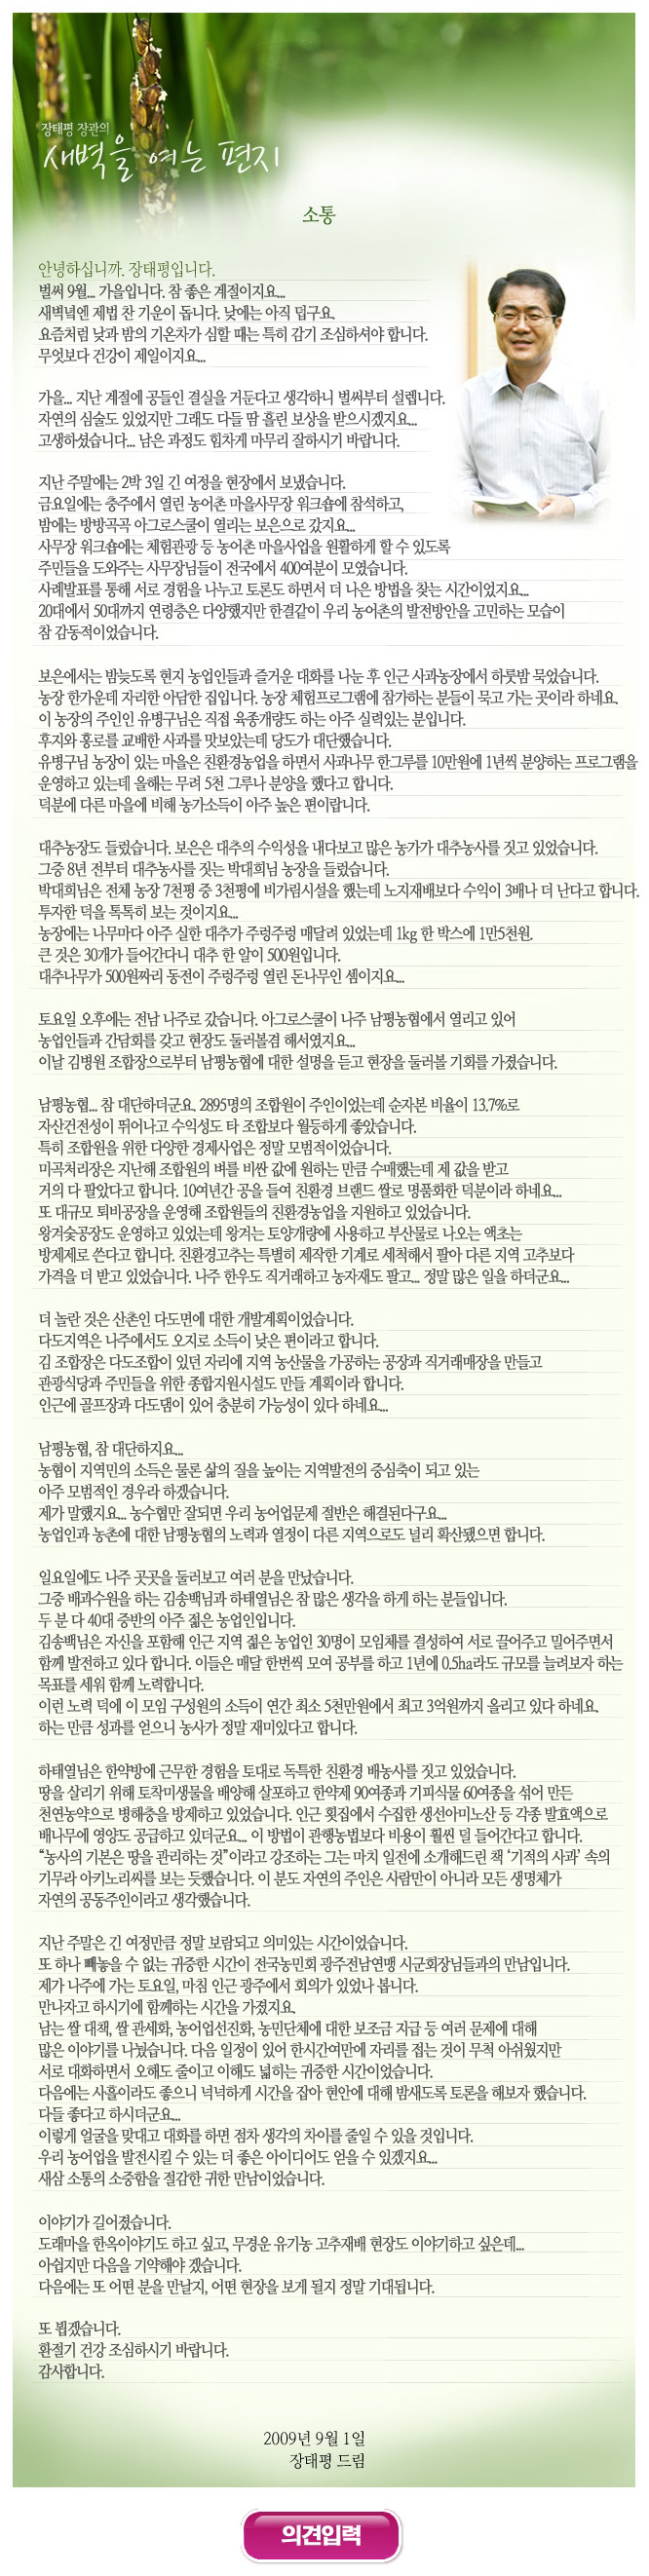 장태평 장관의
새벽을 여는 편지
소통
안녕하십니까. 장태평입니다.
벌써 9월... 가을입니다. 참 좋은 계절이지요...
새벽녘엔 제법 찬 기운이 돕니다. 낮에는 아직 덥구요.
요즘처럼 낮과 밤의 기온차가 심할 때는 특히 감기 조심하셔야 합니다.
무엇보다 건강이 제일이지요...
가을... 지난 계절에 공들인 결실을 거둔다고 생각하니 벌써부터 설렙니다.
자연의 심술도 있었지만 그래도 다들 땀 흘린 보상을 받으시겠지요...
고생하셨습니다... 남은 과정도 힘차게 마무리 잘하시기 바랍니다.
지난 주말에는 2박 3일 긴 여정을 현장에서 보냈습니다.
금요일에는 충주에서 열린 농어촌 마을사무장 워크숍에 참석하고,
밤에는 방방곡곡 아그로스쿨이 열리는 보은으로 갔지요...
사무장 워크숍에는 체험관광 등 농어촌 마을사업을 원활하게 할 수 있도록
주민들을 도와주는 사무장님들이 전국에서 400여분이 모였습니다.
사례발표를 통해 서로 경험을 나누고 토론도 하면서 더 나은 방법을 찾는 시간이었지요...
20대에서 50대까지 연령층은 다양했지만 한결같이 우리 농어촌의 발전방안을 고민하는 모습이
참 감동적이었습니다.
보은에서는 밤늦도록 현지 농업인들과 즐거운 대화를 나눈 후 인근 사과농장에서 하룻밤 묵었습니다.
농장 한가운데 자리한 아담한 집입니다. 농장 체험프로그램에 참가하는 분들이 묵고 가는 곳이라 하네요.
이 농장의 주인인 유병구님은 직접 육종개량도 하는 아주 실력있는 분입니다.
후지와 홍로를 교배한 사과를 맛보았는데 당도가 대단했습니다.
유병구님 농장이 있는 마을은 친환경농업을 하면서 사과나무 한그루를 10만원에 1년씩 분양하는 프로그램을
운영하고 있는데 올해는 무려 5천 그루나 분양을 했다고 합니다.
덕분에 다른 마을에 비해 농가소득이 아주 높은 편이랍니다.
대추농장도 들렀습니다. 보은은 대추의 수익성을 내다보고 많은 농가가 대추농사를 짓고 있었습니다.
그중 8년 전부터 대추농사를 짓는 박대희님 농장을 들렀습니다.
박대희님은 전체 농장 7천평 중 3천평에 비가림시설을 했는데 노지재배보다 수익이 3배나 더 난다고 합니다.
투자한 덕을 톡톡히 보는 것이지요...
농장에는 나무마다 아주 실한 대추가 주렁주렁 매달려 있었는데 1kg 한 박스에 1만5천원.
큰 것은 30개가 들어간다니 대추 한 알이 500원입니다.
대추나무가 500원짜리 동전이 주렁주렁 열린 돈나무인 셈이지요...
토요일 오후에는 전남 나주로 갔습니다. 아그로스쿨이 나주 남평농협에서 열리고 있어
농업인들과 간담회를 갖고 현장도 둘러볼겸 해서였지요...
이날 김병원 조합장으로부터 남평농협에 대한 설명을 듣고 현장을 둘러볼 기회를 가졌습니다.
남평농협... 참 대단하더군요. 2895명의 조합원이 주인이었는데 순자본 비율이 13.7%로
자산건전성이 뛰어나고 수익성도 타 조합보다 월등하게 좋았습니다.
특히 조합원을 위한 다양한 경제사업은 정말 모범적이었습니다.
미곡처리장은 지난해 조합원의 벼를 비싼 값에 원하는 만큼 수매했는데 제 값을 받고
거의 다 팔았다고 합니다. 10여년간 공을 들여 친환경 브랜드 쌀로 명품화한 덕분이라 하네요...
또 대규모 퇴비공장을 운영해 조합원들의 친환경농업을 지원하고 있었습니다.
왕겨숯공장도 운영하고 있었는데 왕겨는 토양개량에 사용하고 부산물로 나오는 액초는
방제제로 쓴다고 합니다. 친환경고추는 특별히 제작한 기계로 세척해서 팔아 다른 지역 고추보다
가격을 더 받고 있었습니다. 나주 한우도 직거래하고 농자재도 팔고... 정말 많은 일을 하더군요...
더 놀란 것은 산촌인 다도면에 대한 개발계획이었습니다.
다도지역은 나주에서도 오지로 소득이 낮은 편이라고 합니다.
김 조합장은 다도조합이 있던 자리에 지역 농산물을 가공하는 공장과 직거래매장을 만들고
관광식당과 주민들을 위한 종합지원시설도 만들 계획이라 합니다.
인근에 골프장과 다도댐이 있어 충분히 가능성이 있다 하네요...
남평농협, 참 대단하지요...
농협이 지역민의 소득은 물론 삶의 질을 높이는 지역발전의 중심축이 되고 있는
아주 모범적인 경우라 하겠습니다.
제가 말했지요... 농수협만 잘되면 우리 농어업문제 절반은 해결된다구요...
농업인과 농촌에 대한 남평농협의 노력과 열정이 다른 지역으로도 널리 확산됐으면 합니다.
일요일에도 나주 곳곳을 둘러보고 여러 분을 만났습니다.
그중 배과수원을 하는 김송백님과 하태열님은 참 많은 생각을 하게 하는 분들입니다.
두 분 다 40대 중반의 아주 젊은 농업인입니다.
김송백님은 자신을 포함해 인근 지역 젊은 농업인 30명이 모임체를 결성하여 서로 끌어주고 밀어주면서
함께 발전하고 있다 합니다. 이들은 매달 한번씩 모여 공부를 하고 1년에 0.5ha라도 규모를 늘려보자 하는
목표를 세워 함께 노력합니다.
이런 노력 덕에 이 모임 구성원의 소득이 연간 최소 5천만원에서 최고 3억원까지 올리고 있다 하네요.
하는 만큼 성과를 얻으니 농사가 정말 재미있다고 합니다.
하태열님은 한약방에 근무한 경험을 토대로 독특한 친환경 배농사를 짓고 있었습니다.
땅을 살리기 위해 토착미생물을 배양해 살포하고 한약제 90여종과 기피식물 60여종을 섞어 만든
천연농약으로 병해충을 방제하고 있었습니다. 인근 횟집에서 수집한 생선아미노산 등 각종 발효액으로
배나무에 영양도 공급하고 있더군요... 이 방법이 관행농법보다 비용이 훨씬 덜 들어간다고 합니다.
“농사의 기본은 땅을 관리하는 것”이라고 강조하는 그는 마치 일전에 소개해드린 책 ‘기적의 사과’ 속의
기무라 아키노리씨를 보는 듯했습니다. 이 분도 자연의 주인은 사람만이 아니라 모든 생명체가
자연의 공동주인이라고 생각했습니다.
지난 주말은 긴 여정만큼 정말 보람되고 의미있는 시간이었습니다.
또 하나 빼놓을 수 없는 귀중한 시간이 전국농민회 광주전남연맹 시군회장님들과의 만남입니다.
제가 나주에 가는 토요일, 마침 인근 광주에서 회의가 있었나 봅니다.
만나자고 하시기에 함께하는 시간을 가졌지요.
남는 쌀 대책, 쌀 관세화, 농어업선진화, 농민단체에 대한 보조금 지급 등 여러 문제에 대해
많은 이야기를 나눴습니다. 다음 일정이 있어 한시간여만에 자리를 접는 것이 무척 아쉬웠지만
서로 대화하면서 오해도 줄이고 이해도 넓히는 귀중한 시간이었습니다.
다음에는 사흘이라도 좋으니 넉넉하게 시간을 잡아 현안에 대해 밤새도록 토론을 해보자 했습니다.
다들 좋다고 하시더군요...
이렇게 얼굴을 맞대고 대화를 하면 점차 생각의 차이를 줄일 수 있을 것입니다.
우리 농어업을 발전시킬 수 있는 더 좋은 아이디어도 얻을 수 있겠지요...
새삼 소통의 소중함을 절감한 귀한 만남이었습니다.
이야기가 길어졌습니다.
도래마을 한옥이야기도 하고 싶고, 무경운 유기농 고추재배 현장도 이야기하고 싶은데...
아쉽지만 다음을 기약해야 겠습니다.
다음에는 또 어떤 분을 만날지, 어떤 현장을 보게 될지 정말 기대됩니다.
또 뵙겠습니다.
환절기 건강 조심하시기 바랍니다.
감사합니다.
2009년 9월 1일
장태평 드림
의견입력